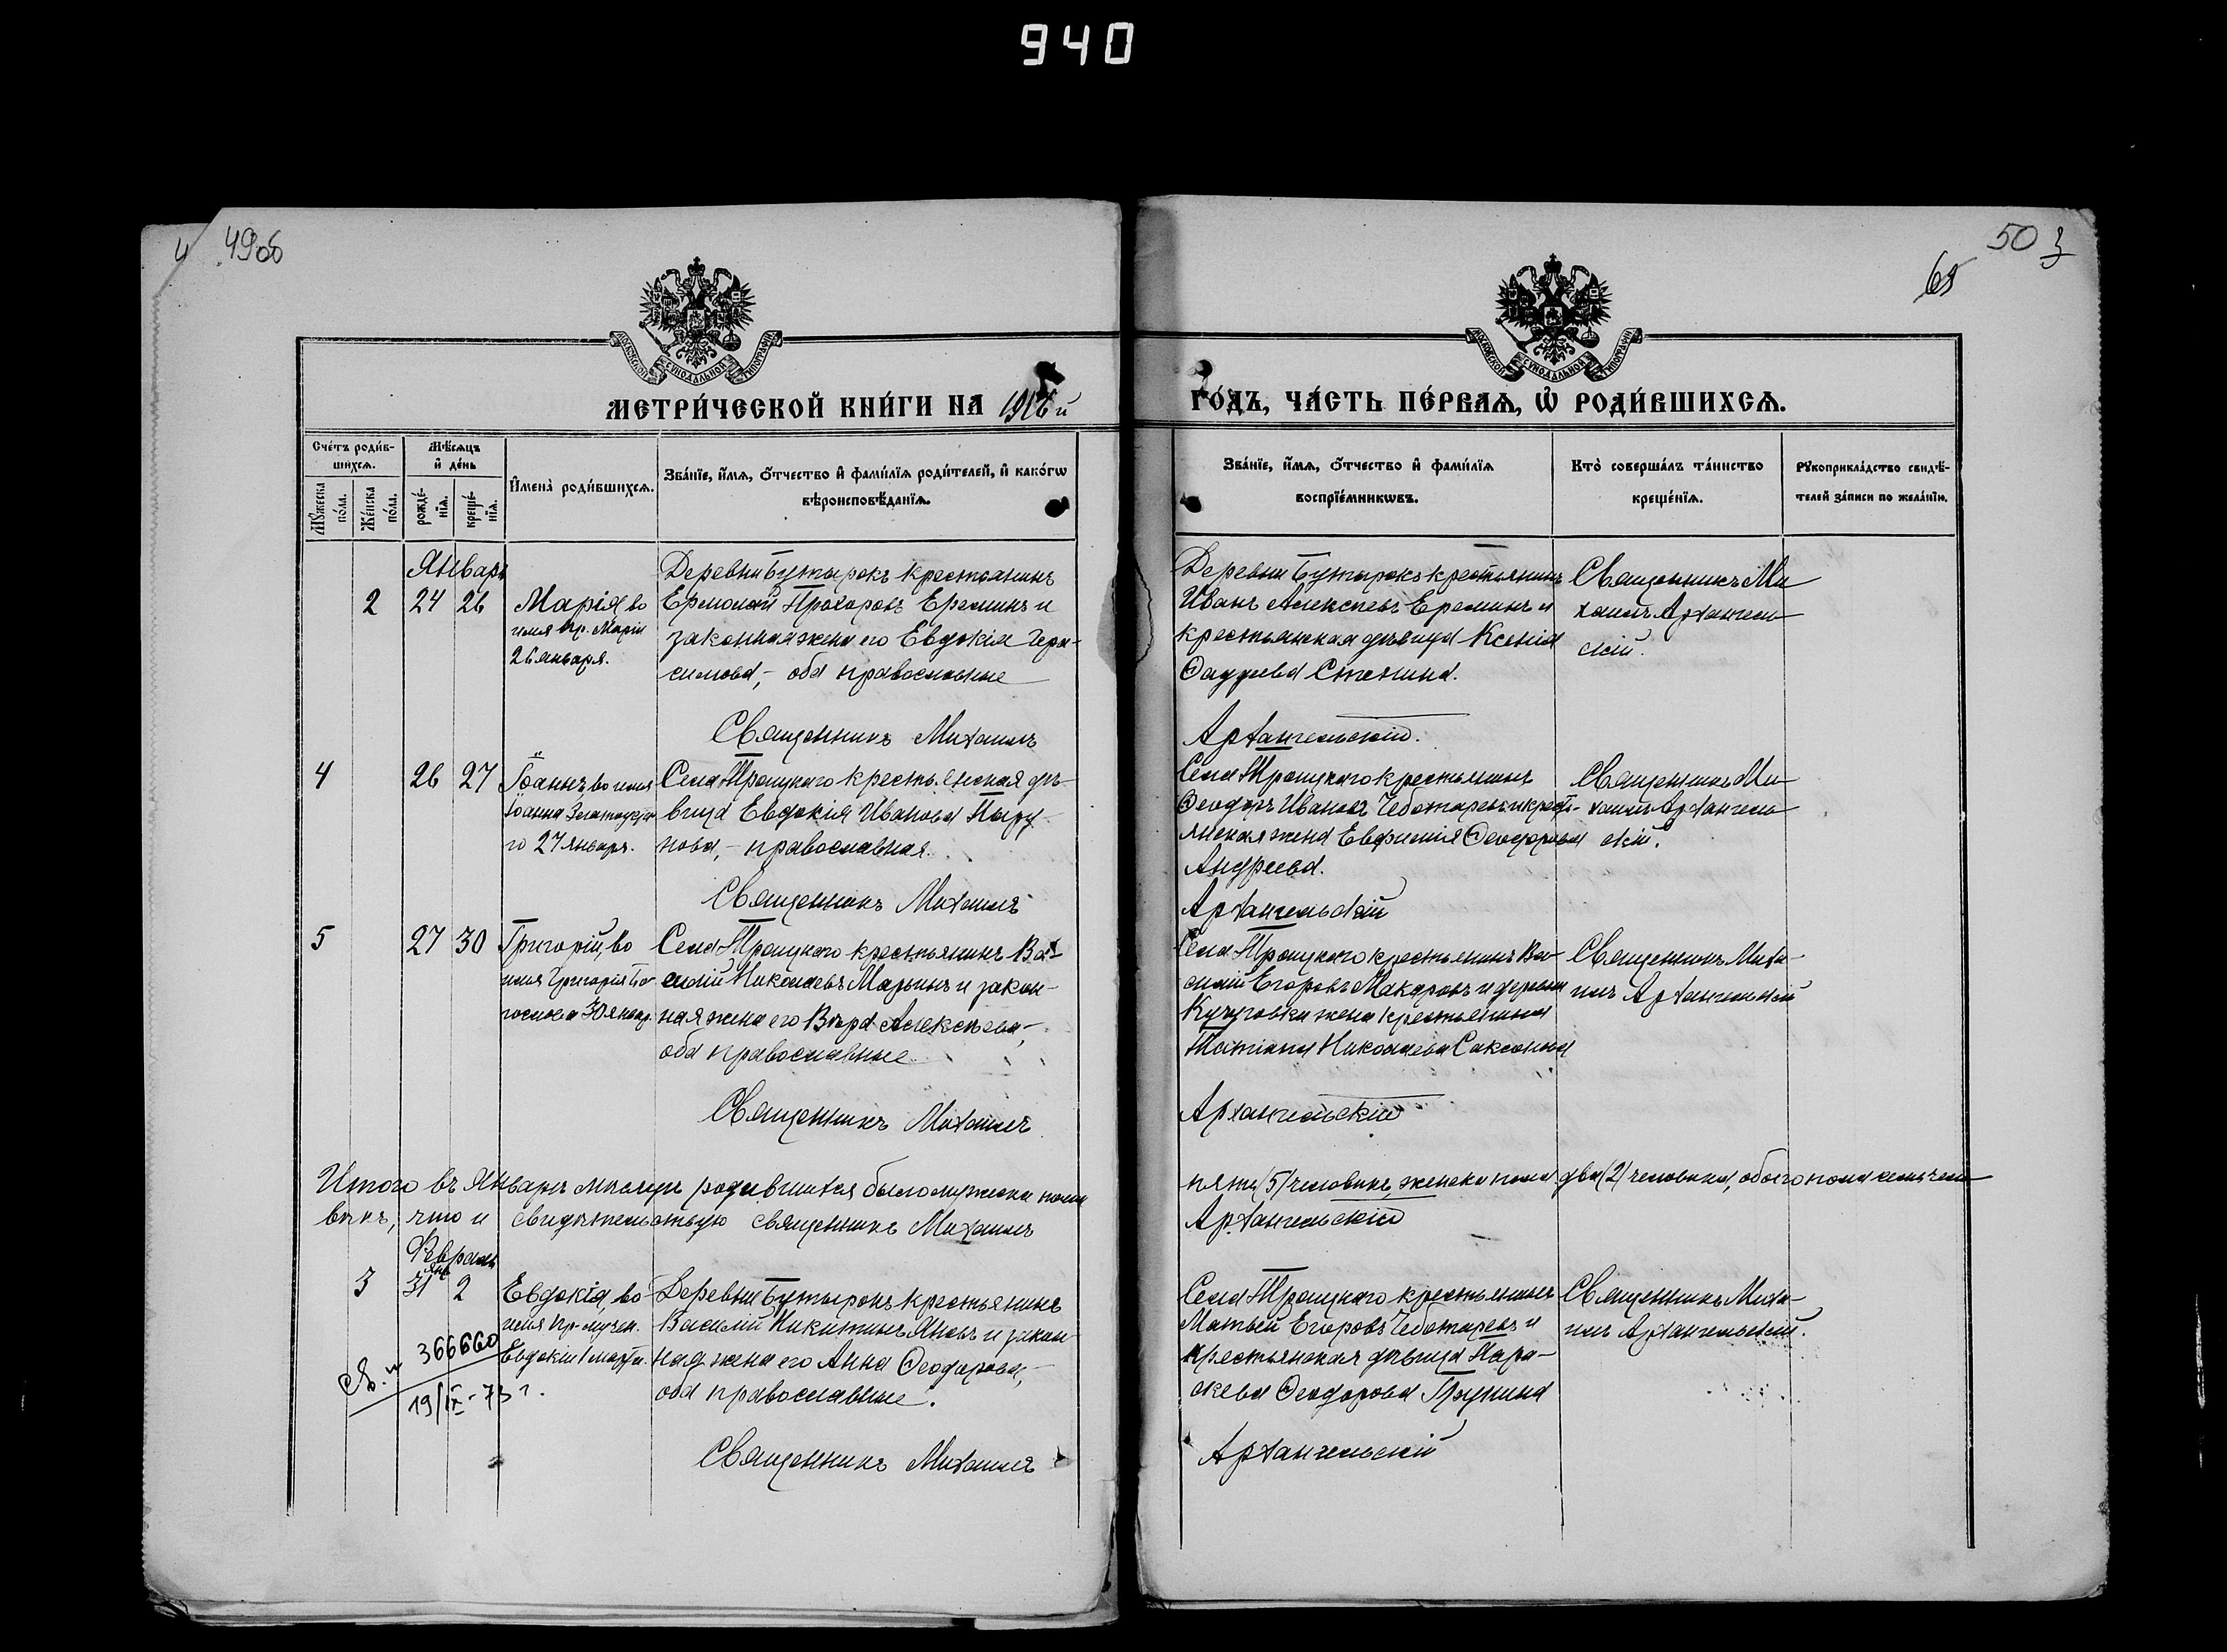 940
4
49об
50
МЕТРИ́ЧЕСКОЙ КНИ́ГИ НА
ГО́ДЪ, ЧА́СТЬ ПЕ́РВАѦ, Ѡ҆ РОДИ́ВШИХСѦ.
Сче́тъ роди́в-
шихсѧ.
Мꙋ́жеска по́ла.
Же́нска по́ла.
Мѣ́сѧцъ
и҆ де́нь
рожде́-
нїѧ.
креще́-
нїѧ.
И҆мена̀ роди́вшихсѧ.
Зва́нїе, и҆́мѧ, ѻ҆́тчество и҆ фами́лїѧ роди́телей, и҆ како́гѡ
вѣроисповѣ́данїѧ.
Зва́нїе, и҆́мѧ, ѻ҆́тчество и҆ фами́лїѧ
воспрїе́мникѡвъ.
Кто̀ соверша́лъ та́инство
креще́нїѧ.
Рꙋкоприкла́дство свидѣ́-
телей за́писи по жела́нїю.
Январь
2 24 26
Марія, во
имя пр. Маріи
26 января.
Деревни Бутырокъ крестьянинъ
Ермолай Прохоровъ Ереминъ и
законная жена его Евдокія Гера-
симова, - оба православные
Деревни Бутырокъ крестьянинъ
Иванъ Алексѣевъ Ереминъ и
крестьянская дѣвица Ксенія
Ѳаддеева Стенина.
Священникъ Ми
хаилъ Архангель
скій.
Священникъ Михаилъ
Архангельскій.
4 26 27
Іоаннъ, во имя
Іоанна Златоуста
го 27 января.
Села Троицкаго крестьянская дѣ-
вица Евдокія Иванова
нова, - православная.
Села Троицкаго крестьянинъ
Ѳеодоръ Ивановъ Чеботаревъ и кресть-
янская жена Евфимія Ѳеодорова
Андреева.
Священникъ Ми-
хаилъ Архангель
скій.
Священникъ Михаилъ
Архангельскій
5 27 30
Григорій, во
имя Григорія Бо
гослова 30 январ.
Села Троицкаго крестьянинъ Ва-
силій Николаевъ Марьинъ и закон-
ная жена его Вѣра Алексѣева, -
оба православные.
Села Троицкаго крестьянинъ Ва-
силій Егоровъ Макаровъ и деревни
жена крестьянина
Татіана Николаева Саксонова
Священникъ Миха-
илъ Архангельскій
Священникъ Михаилъ
Архангельскій
Итого въ Январѣ мѣсяцѣ родившихся было мужеска пола
пять (5) человѣкъ, женска пола два (2) человѣка, обоего пола семь чело
вѣкъ, что и свидѣтельствую священникъ Михаилъ
Архангельскій
Февраль
Янв
3 31 2
Евдокія, во
имя пр-мучен.
Евдокіи 1 марта.
Деревни Бутырокъ крестьянинъ
Василій Никитинъ Яновъ и закон-
ная жена его Анна Ѳеодорова, -
оба православные.
Села Троицкаго крестьянинъ
Матвей Егоровъ Чеботаревъ и
крестьянская дѣвица Пара-
скева Ѳеодорова Грунина
Священникъ Миха-
илъ Архангельскій.
366660
19/IX-73 г.
Священникъ Михаилъ
Архангельскій